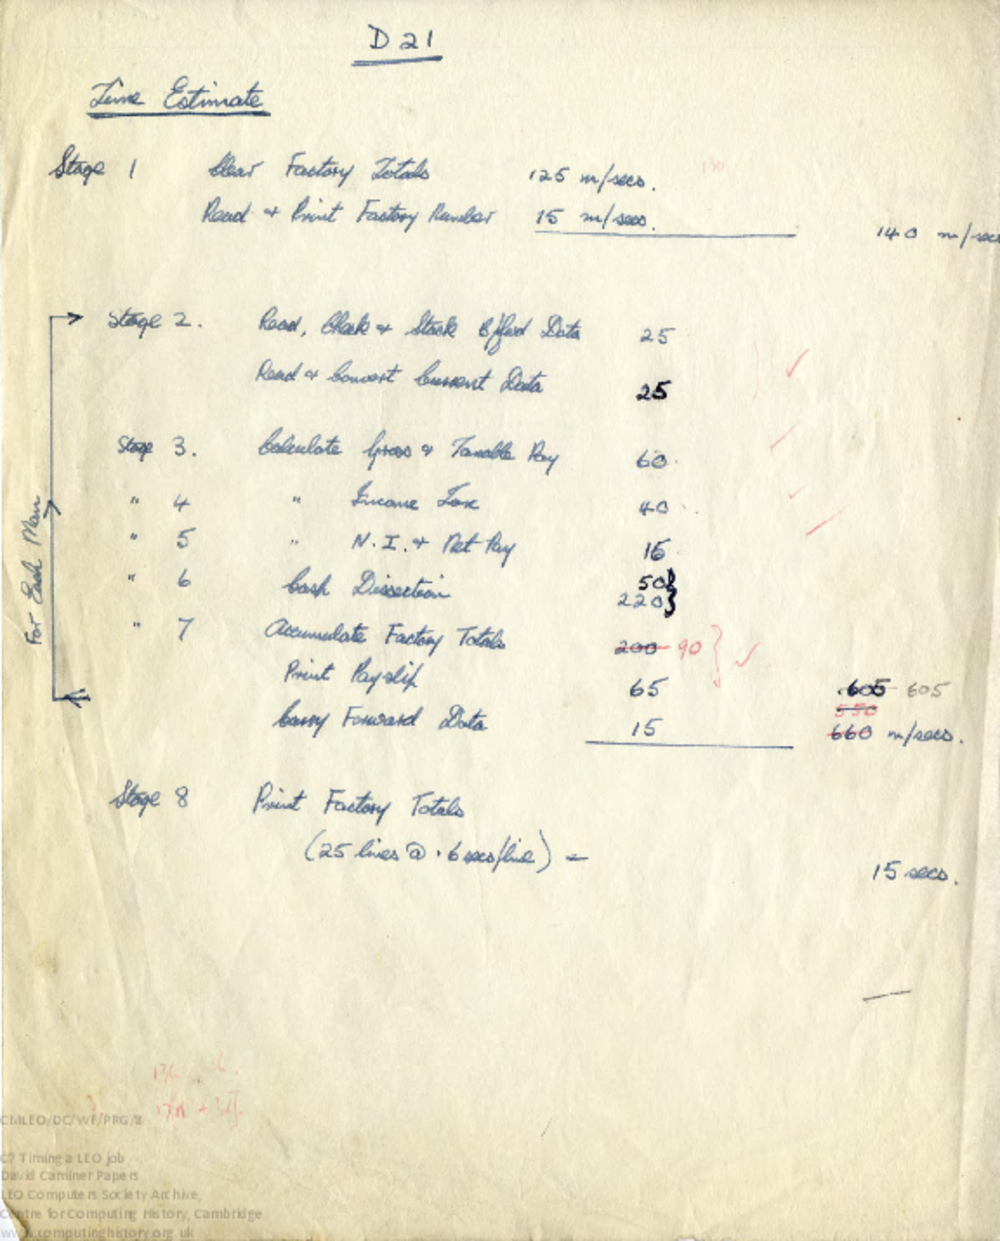 D 21
Time Estimate
Stage 1 Clear Factory Totals 125 m/secs. 130
Read + Print Factory Number 15 m/secs. 140 m/sec
Stage 2. Read, Check + Stack B/fwd Data 25
Read + Convert Current Data 25
Stage 3. Calculate Gross + Taxable Pay 60
" 4 " Income Tax 40
" 5 " N.I. + Net Pay 15
" 6 Cash Dissection 50
220
" 7 Accumulate Factory Totals 200 90
Print Payslip 65 .605 605
550
Carry Forward Data 15 660 m/secs.
For Each Man
Stage 8 Print Factory Totals
(25 lines @ .6 secs/line) = 15 secs.
CMLEO/DC/WF/PRG/8
C? Timing a LEO job
David Caminer Papers
LEO Computers Society Archive,
Centre for Computing History, Cambridge
www.computinghistory.org.uk